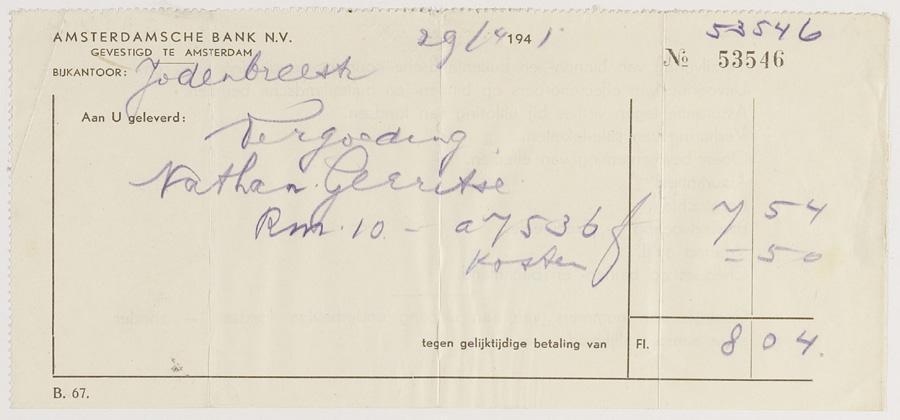 AMSTERDAMSCHE BANK N.V.
GEVESTIGD TE AMSTERDAM
29/4 1941
53546
No 53546
BIJKANTOOR: Jodenbreestr
Aan U geleverd:
Vergoeding
Nathan Gerritse
Rm. 10 - a 7536 f 7 54
Kosten = 50
tegen gelijktijdige betaling van Fl. 8 04.
B. 67.